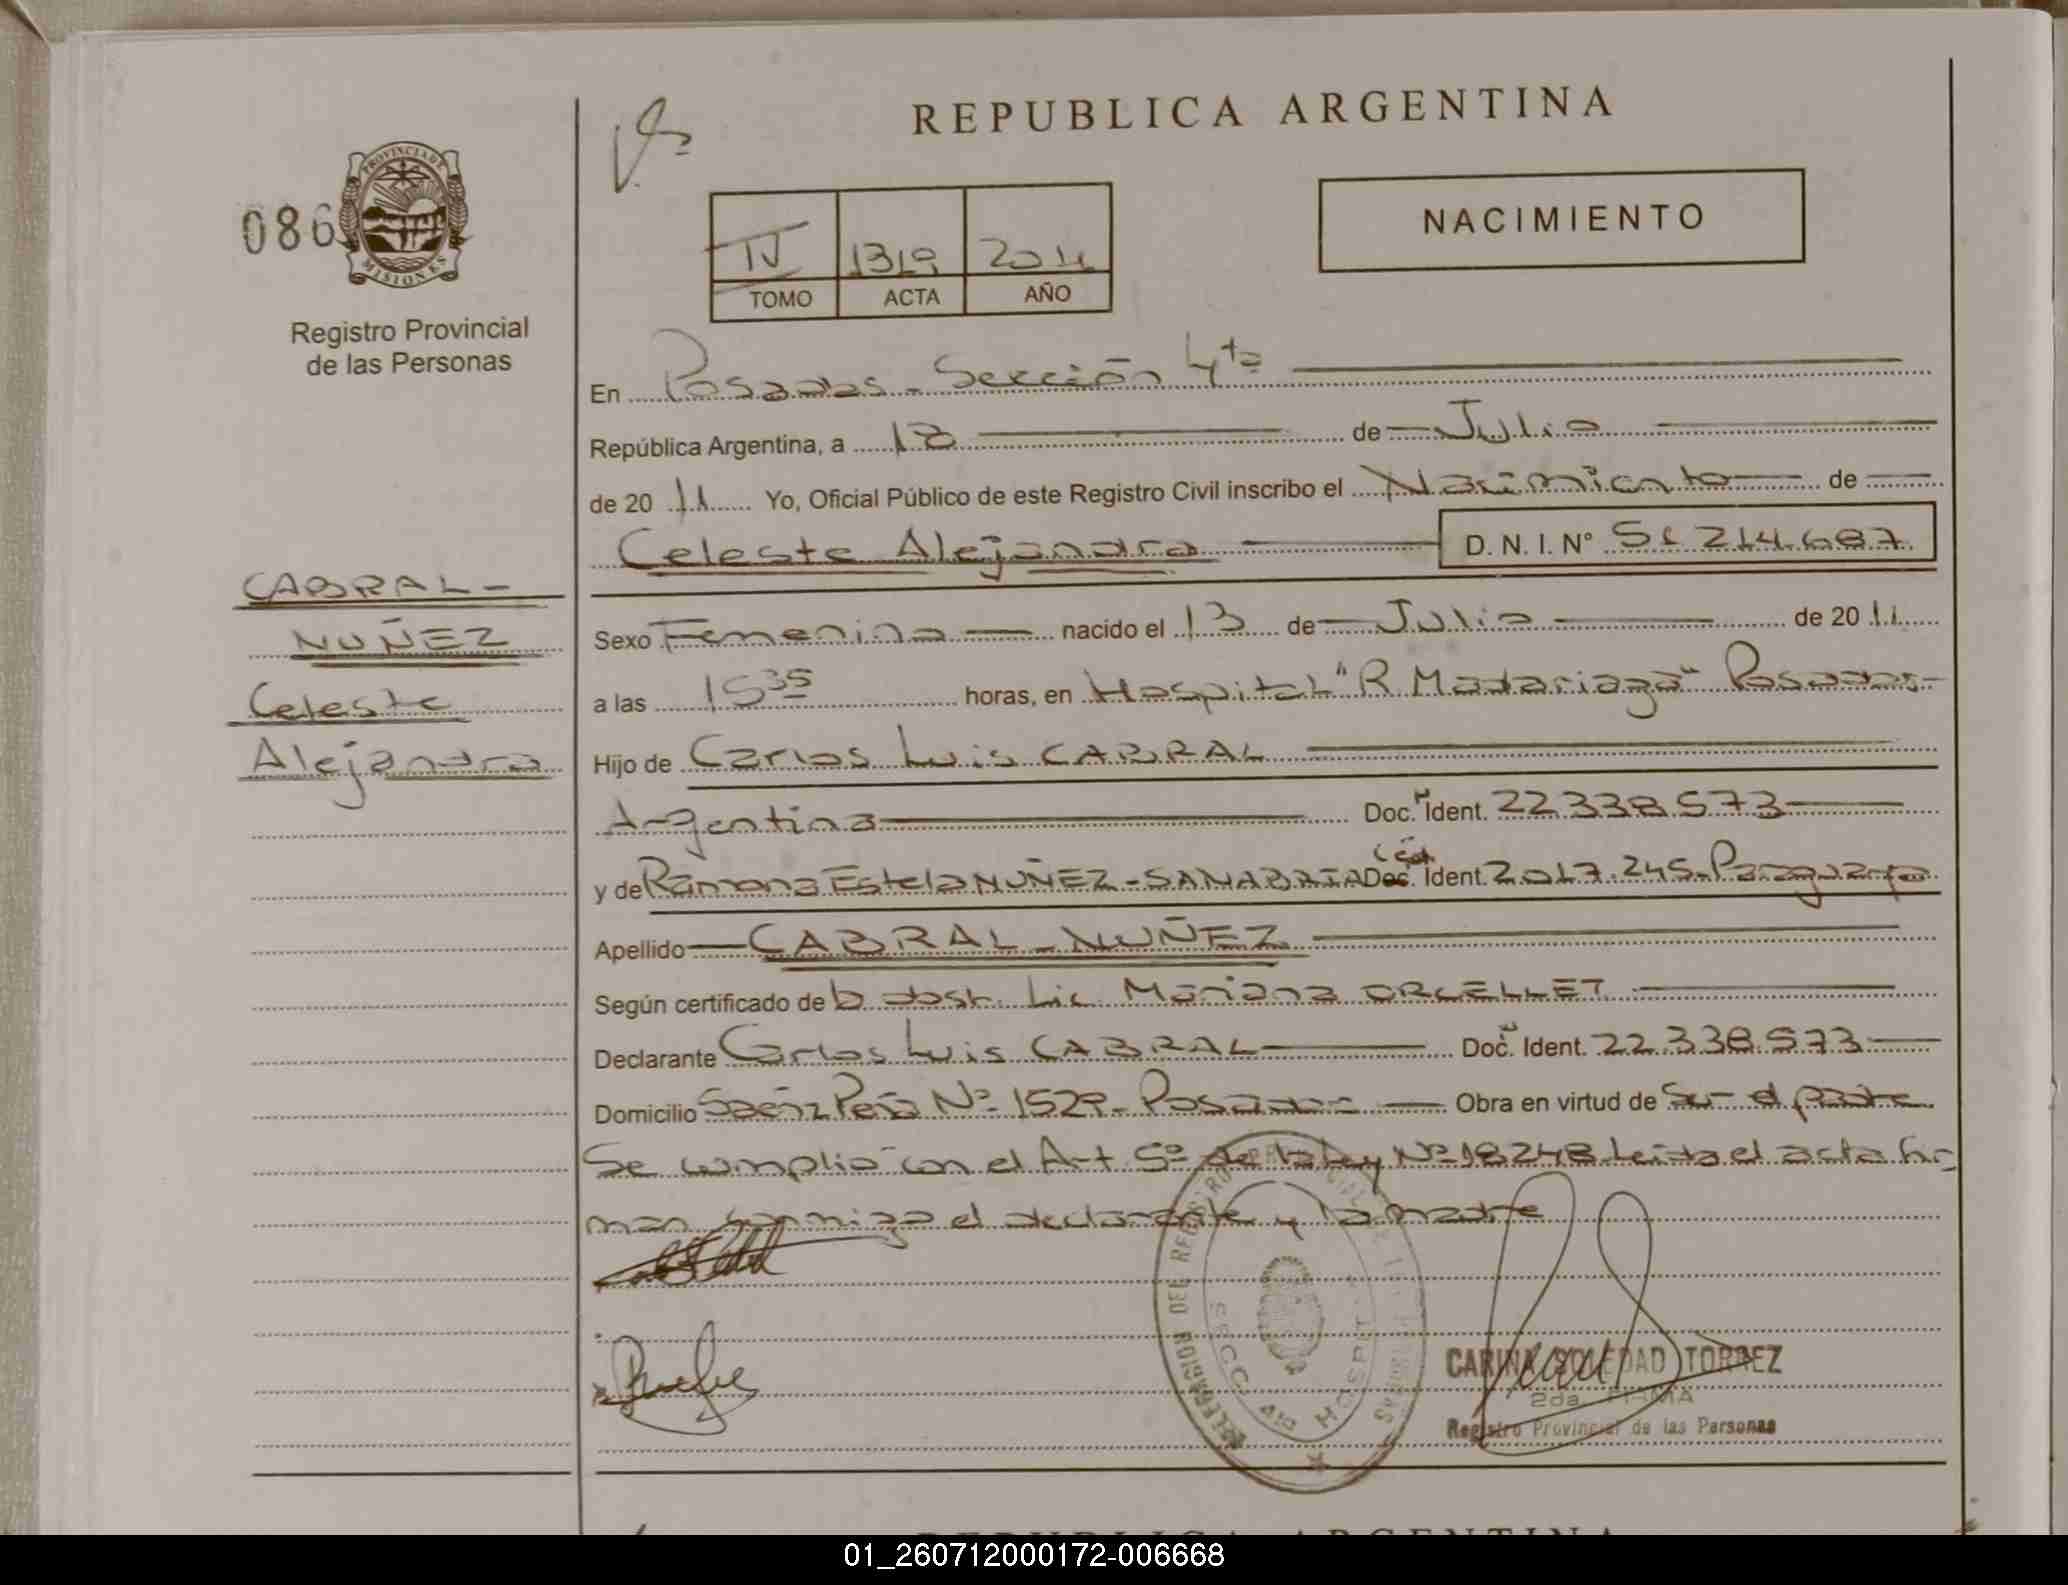 REPUBLICA ARGENTINA
086
PROVINCIA DE MISIONES
Registro Provincial
de las Personas
IV 1319 2011
TOMO ACTA AÑO
NACIMIENTO
En Posadas - Sección 4ta
República Argentina, a 18 de Julio
de 2011 Yo, Oficial Público de este Registro Civil inscribo el Nacimiento de
Celeste Alejandra D.N.I. N° 51.214.687
CABRAL-
NUÑEZ
Celeste
Alejandra
Sexo Femenino nacido el 13 de Julio de 2011
a las 15 35 horas, en Hospital "R Madariaga" Posadas-
Hijo de Carlos Luis CABRAL
Argentina Doc. Ident. 22.338.573
y de Ramona Estela NUÑEZ-SANABRIA Doc. Ident. 2.017.245-Paraguaya
Apellido CABRAL-NUÑEZ
Según certificado de lo obst. Lic. Mariana ORCELLET
Declarante Carlos Luis CABRAL Doc. Ident. 22.338.573
Domicilio Saénz Peña N° 1529- Posadas Obra en virtud de Ser el padre
Se cumplio con el Art 5° de la ley N° 18248 Leida el acta fir
man conmigo el declarante y la madre
DELEGACION DEL REGISTRO PROVINCIAL DE LAS PERSONAS
SECC. 4ta HOSPITAL
CARINA SOLEDAD TORREZ
2da. FIRMA
Registro Provincial de las Personas
REPUBLICA ARGENTINA
01_260712000172-006668